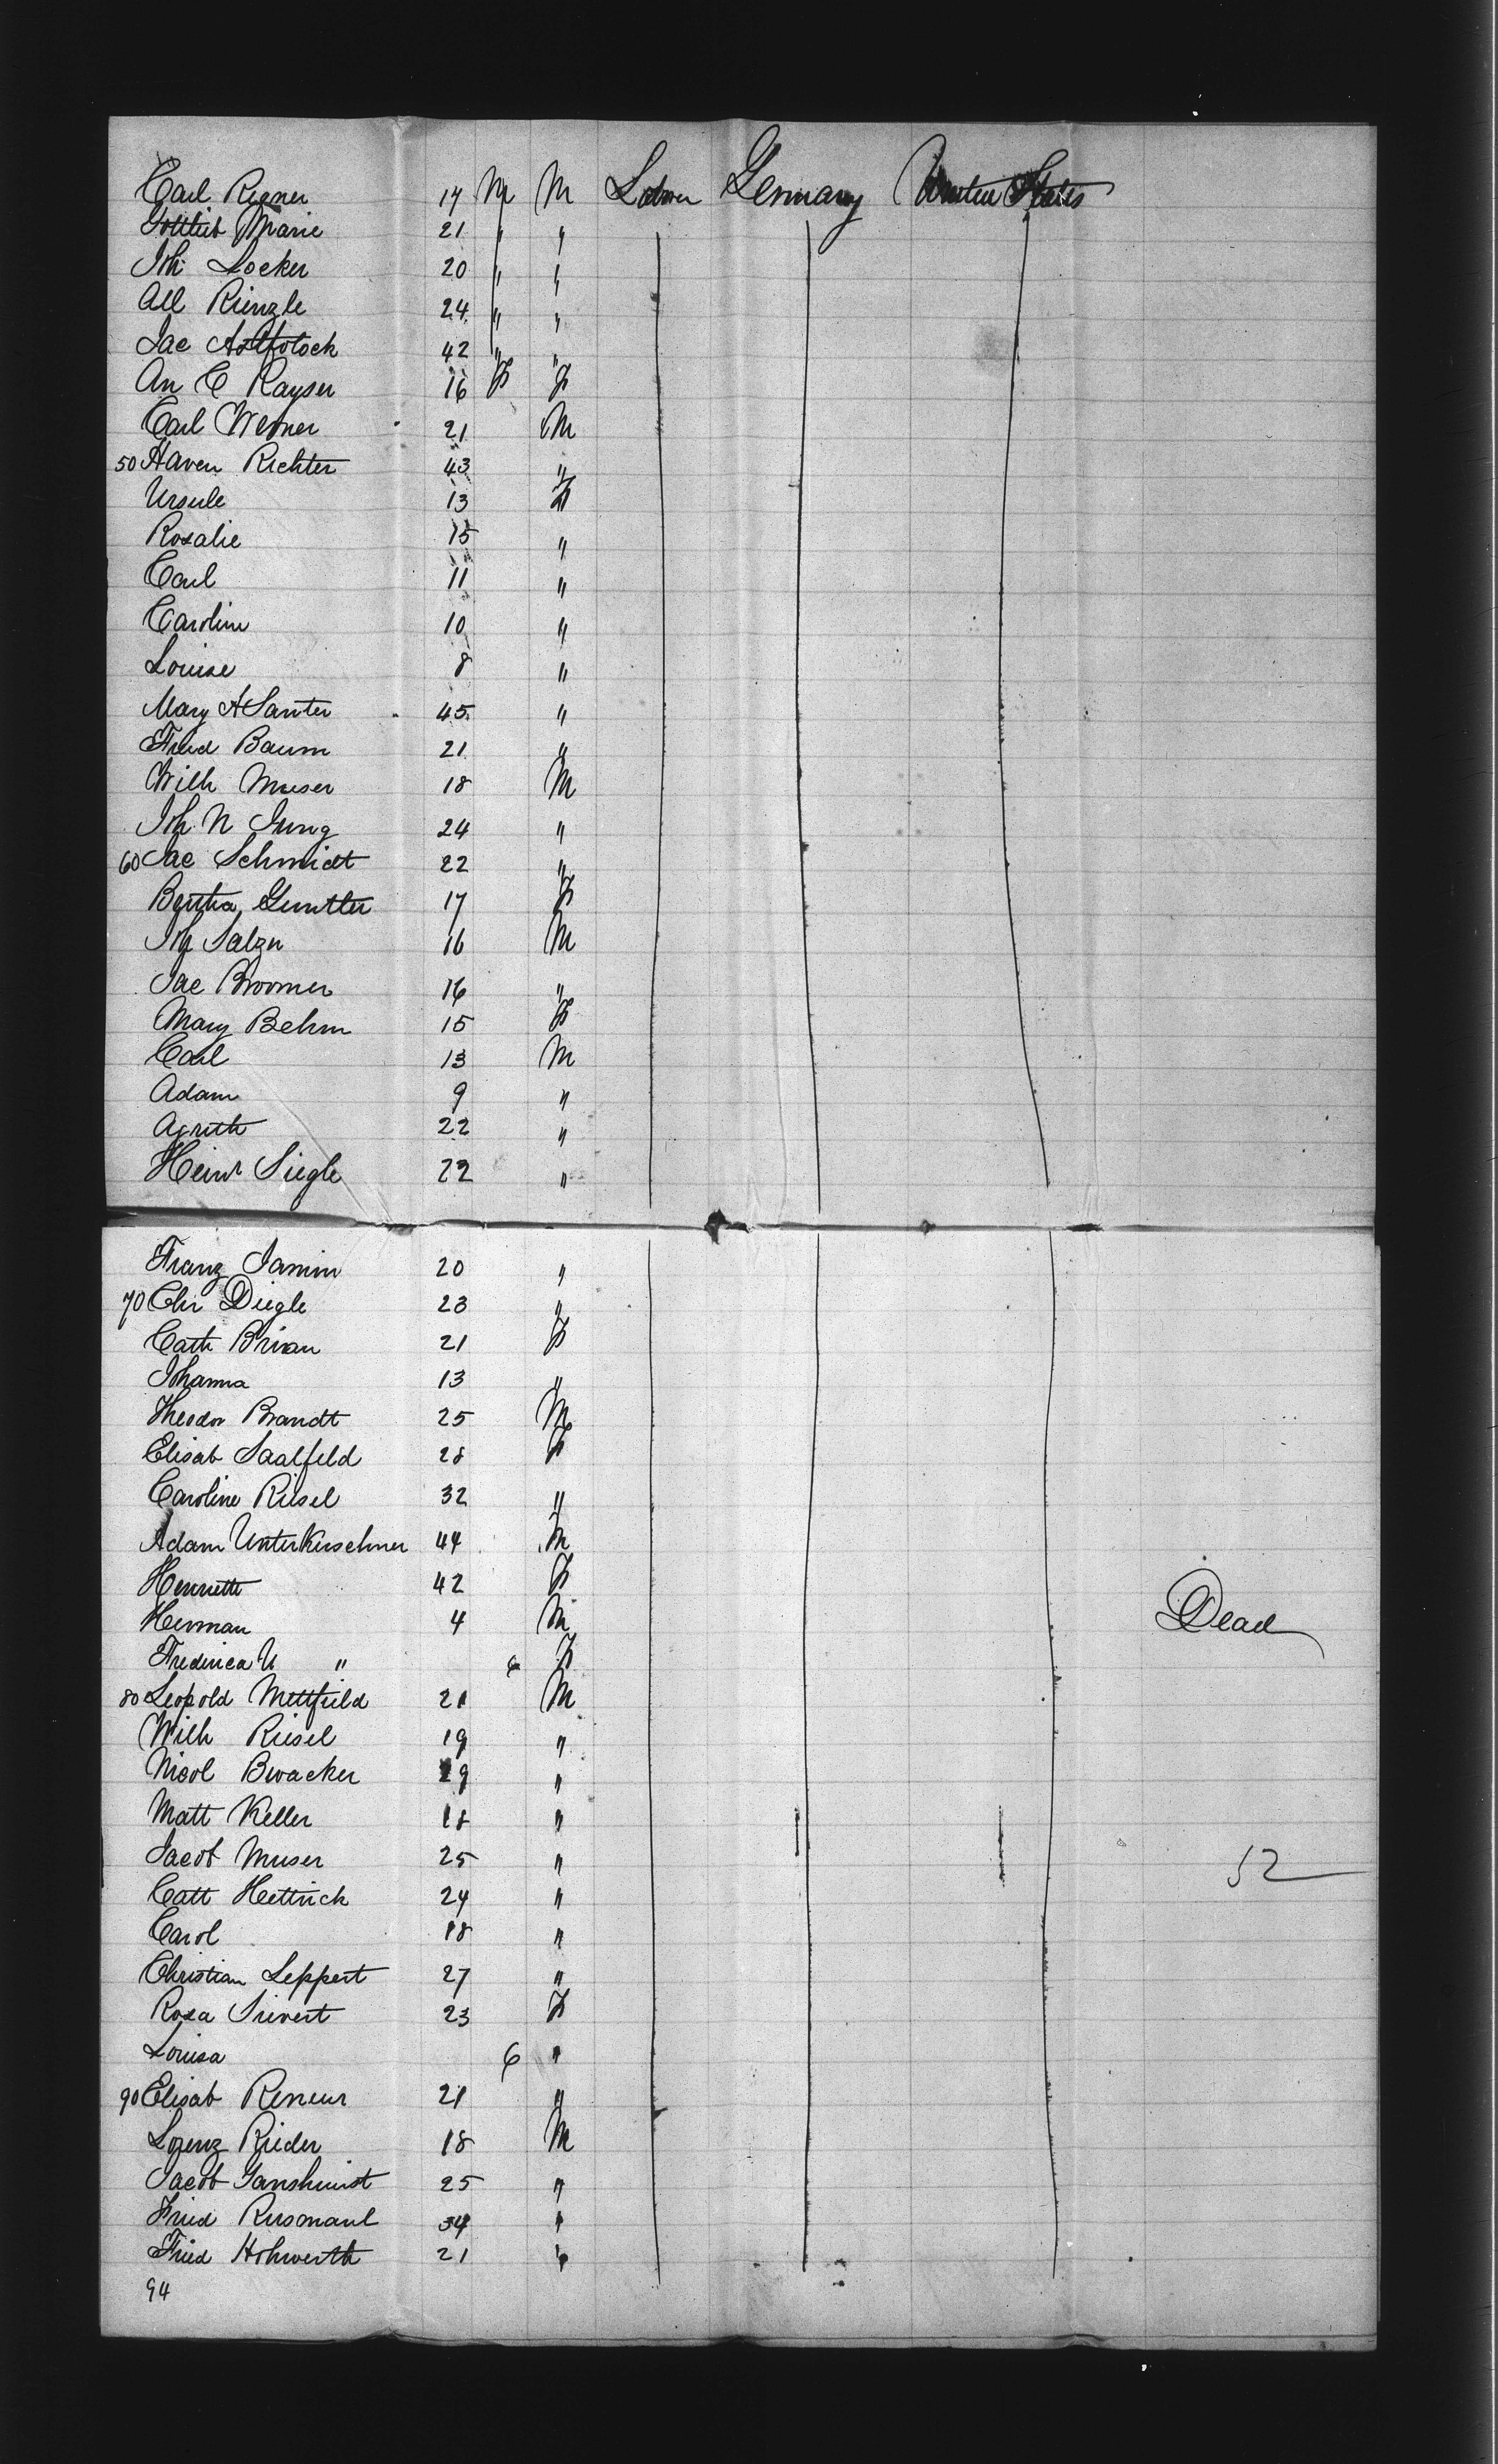 Carl Regner 17 M M Labour Germany United States
Gottlieb Marie 21 " "
Joh Locker 20 " "
All Rinzle 24 " "
Jac 42 " "
An C Rayser 16 F F
Carl Werner 21 M
50 Haven Richter 43 "
Ursule 13 F
Rosalie 15 "
Carl 11 "
Caroline 10 "
Louise 8 "
Mary A Santer 45 "
Fried Baum 21 "
Wilh Muser 18 M
Joh N Jung 24 "
60 Jac Schmidt 22 "
Bertha Guntter 17 F
Joh Salzn 16 M
Jac Broomer 16 "
Mary Behm 15 F
Carl 13 M
Adam 9 "
Agneth 22 "
Heinr Siegle 22 "
Franz Jamin 20 "
70 Chr Diegle 23 "
Cath Brian 21 F
Johanna 13 "
Theodor Brandt 25 M
Elisab Saalfeld 28 F
Caroline Riesel 32 "
Adam Unterkirschner 44 M
Henriette 42 F
Herman 4 M Dead
Frederica U " 6 F
80 Leopold Mettfield 21 M
Wilh Riesel 19 "
Nicol Bwacker 29 "
Matt Keller 18 "
Jacob Muser 25 " 52
Catt Hettrich 24 "
Carol 18 "
Christian Leppert 27 "
Rosa Sievert 23 F
Louisa 6 "
90 Elisab Reneur 21 "
Lorenz Rieder 18 M
Jacob Ganshirst 25 "
Fried Rusmaul 34 "
Fried Hohwerth 21 "
94